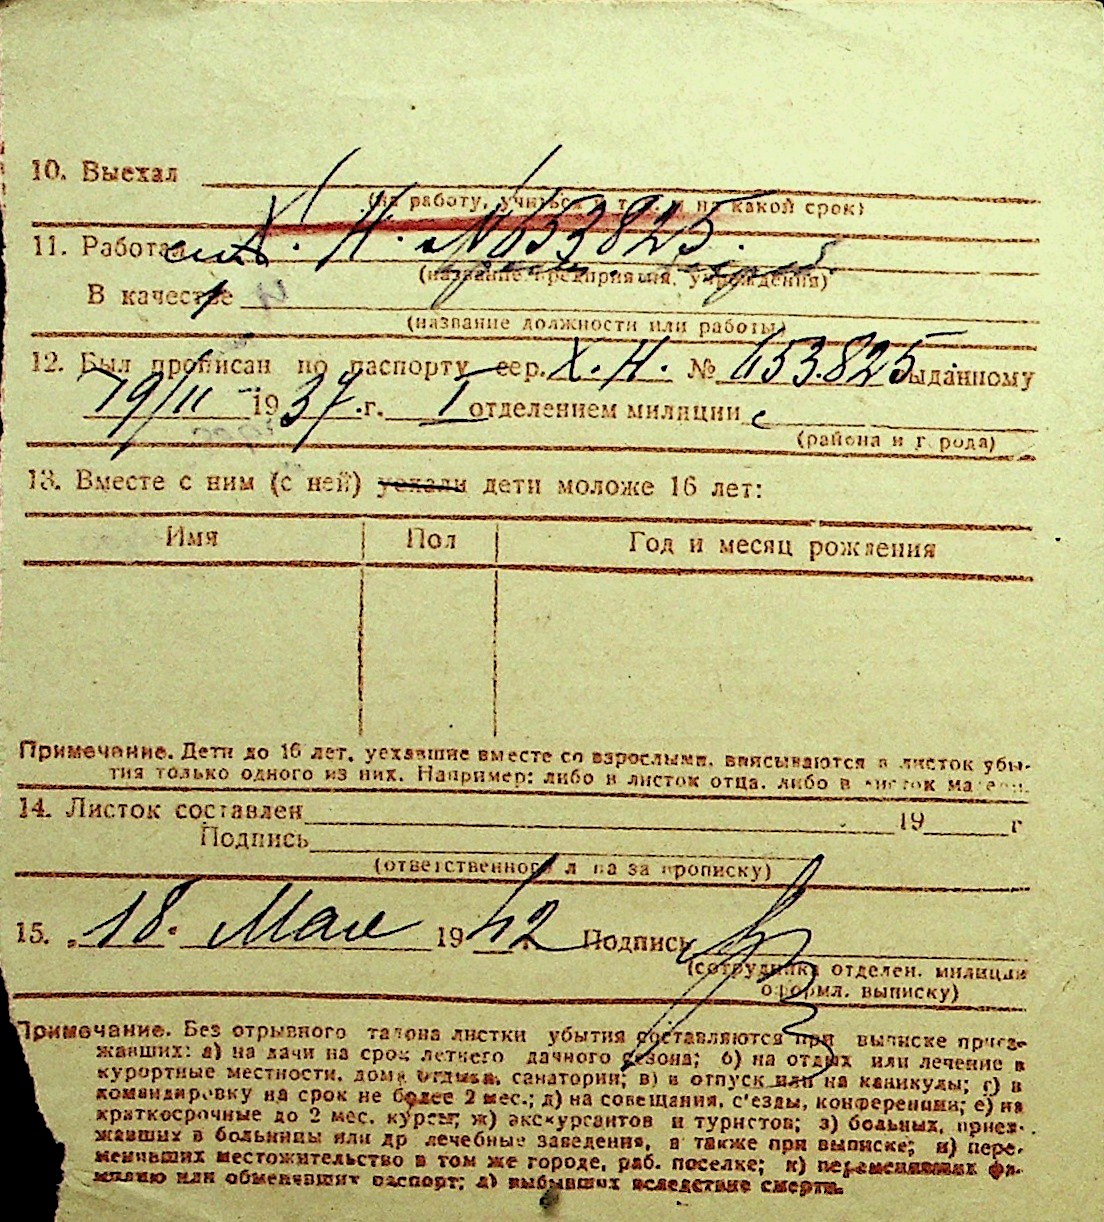 10. Выехал
(на работу, учиться и т. д. и на какой срок)
Х. Н. № 653825.
11. Работал
(название предприятия, учреждения)
В качестве
(название должности или работы)
12. Был прописан по паспорту сер. Х. Н. № 653.825 выданному
19/II 1937 г. I отделением милиции
(района и города)
13. Вместе с ним (с ней) уехали дети моложе 16 лет:
Имя Пол Год и месяц рождения
Примечание. Дети до 16 лет, уехавшие вместе со взрослыми, вписываются в листок убы-
тия только одного из них. Например: либо в листок отца, либо в листок матери.
14. Листок составлен 19 г
Подпись
(ответственного лица за прописку)
15. „18. Мая 1942 Подпись
(сотрудника отделен. милиции
оформл. выписку)
Примечание. Без отрывного талона листки убытия составляются при выписке приез-
жавших: а) на дачи на срок летнего дачного сезона; б) на отдых или лечение в
курортные местности, дома отдыха, санатории; в) в отпуск или на каникулы; г) в
командировку на срок не более 2 мес.; д) на совещания, с'езды, конференции; е) на
краткосрочные до 2 мес. курсы; ж) экскурсантов и туристов; з) больных, приез-
жавших в больницы или др лечебные заведения, а также при выписке; и) пере-
менивших местожительство в том же городе, раб. поселке; к) переменивших фа-
милию или обменявших паспорт; л) выбывших вследствие смерти.